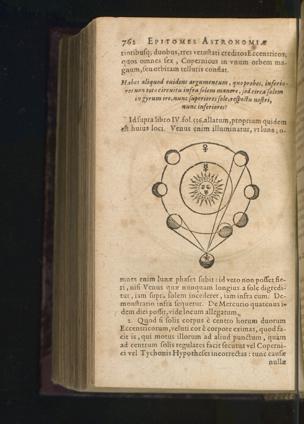 762 EPITOMES ASTRONOMIÆ
tioribusq; duobus, tres vetustati creditos Eccentricos,
quos omnes sex, Copernicus in vnum orbem ma-
gnum, seu orbitam telluris conflat.
Habes aliquod euidens argumentum, quo probes, inferio-
res non toto circuitu infra solem manere, sed circa solem
in gyrum ire, nunc superiores sole, respectu nostri,
nunc inferiores?
Id supra libro IV. fol. 536. allatum, proprium quidem
est huius loci. Venus enim illuminatur, vt luna; o-
♀
♀
mnes enim lunæ phases subit: id vero non posset fie-
ri, nisi Venus quæ nunquam longius a sole digredi-
tur, iam supra solem incederet, iam infra eum. De-
monstratio infra sequetur. De Mercurio quatenus i-
dem dici possit, vide locum allegatum.
2. Quod si solis corpus è centro horum duorum
Eccentricorum, veluti cor è corpore eximas, quod fa-
cit is, qui motus illorum ad aliud punctum, quam
ad centrum solis regulares facit: secutus vel Coperni-
ci vel Tychonis Hypotheses incorrectas: tunc causæ
nullæ